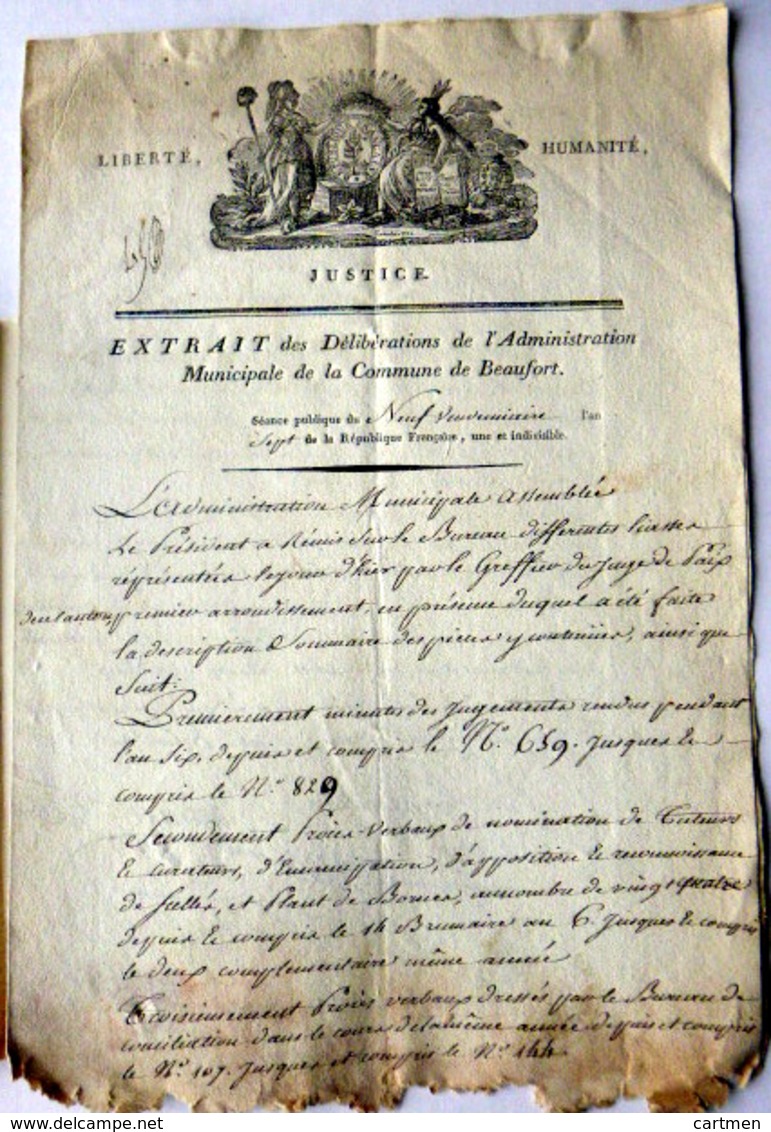 LIBERTÉ, HUMANITÉ,
JUSTICE.
EXTRAIT des Délibérations de l'Administration
Municipale de la Commune de Beaufort.
Séance publique du Neuf Vendemiaire l'an
Sept de la République Françoise, une et indivisible.
L'administration Municipale assemblée
Le Président a Rémis sur le Bureau differentes liasses
réprésentées le jour d'hier par le Greffier du Juge de Paix
du canton premier arrondissement, en présence duquel a été faite
la description Sommaire des pieces y contenües, ainsi que
Suit:
Premierement minutes des Jugements rendus pendant
l'an Six, depuis et compris le N.o 659. Jusques &
compris le N.o 829
Secondement Procès-verbaux de nomination de Tuteurs
& curateurs, d'Emancipation, d'apposition & reconnoissance
de scellés, et Plant de Bornes, au nombre de vingt quatre
depuis & compris le 14 Brumaire an 6. Jusques & compris
le deux complementaire même année
Troisiemement Procès verbaux dressés par le Bureau de
conciliation dans le cours de la même année depuis et compris
le N.o 107. Jusques et compris le N.o 144
cartmen